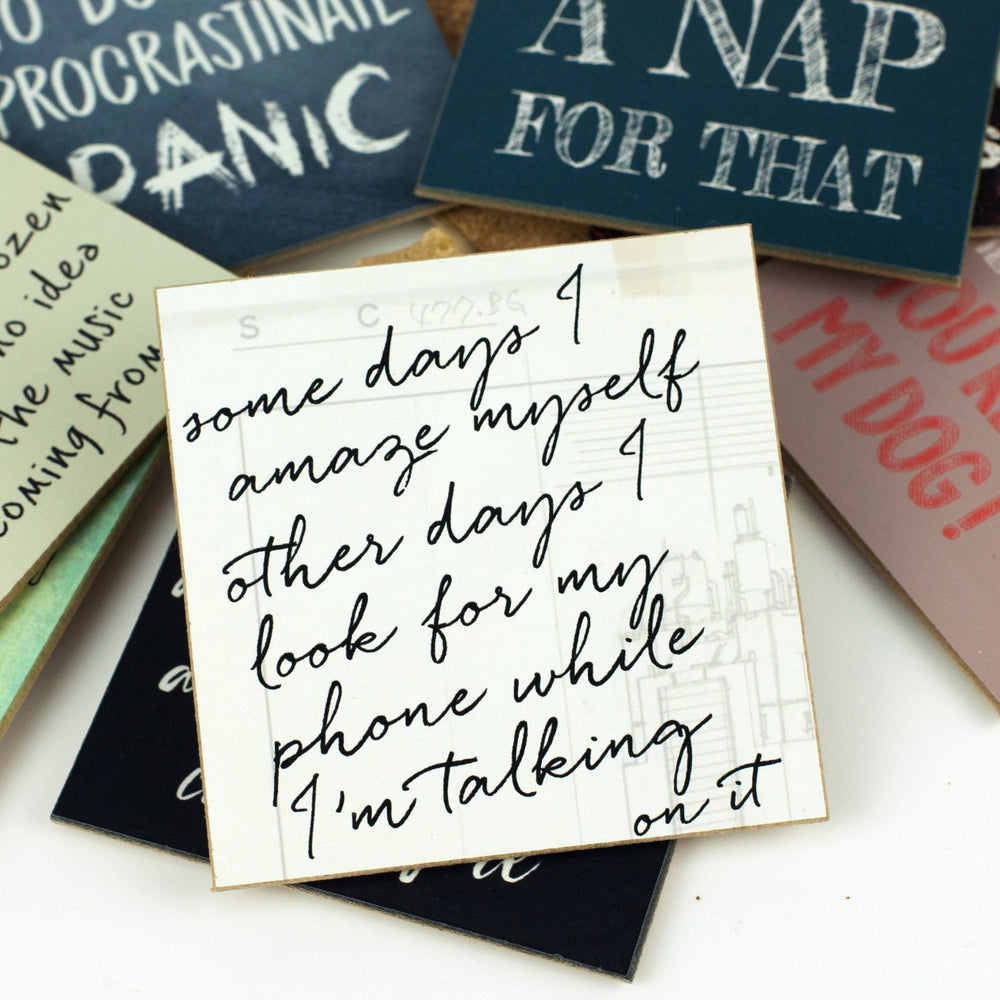 TO DO
PROCRASTINATE
PANIC
A NAP
FOR THAT
no idea
the music
coming from
YOU'RE
MY DOG!
S C 477.BG
some days I
amaze myself
other days I
look for my
phone while
I'm talking
on it